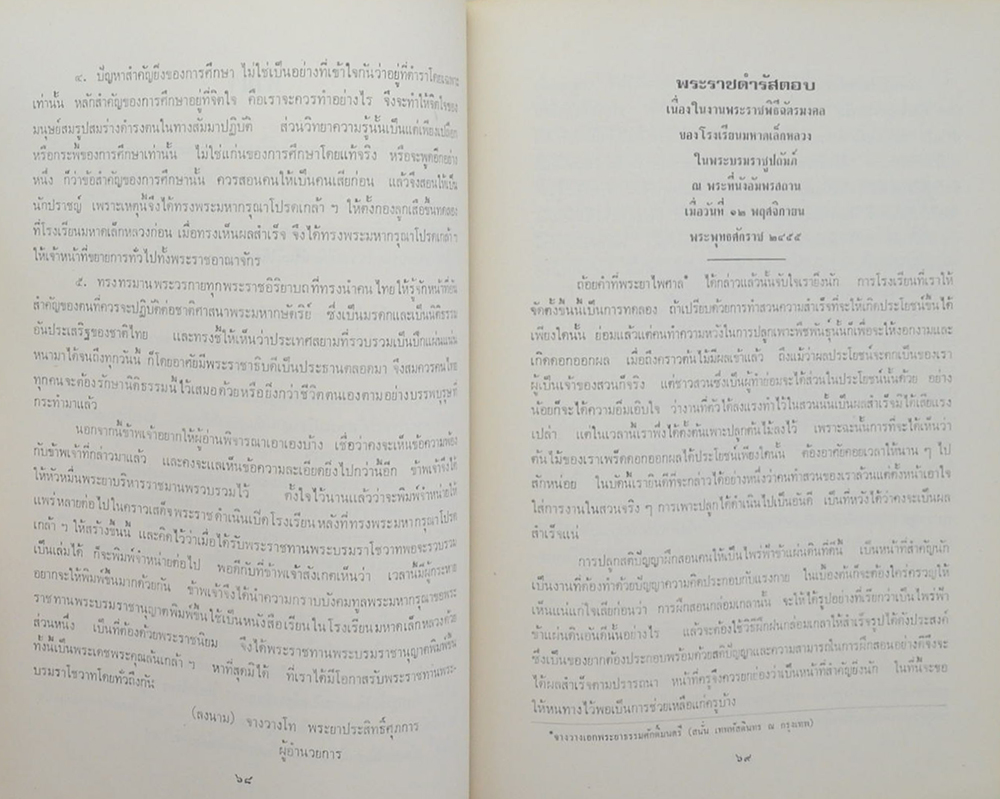 ๔. ปัญหาสำคัญยิ่งของการศึกษา ไม่ใช่เป็นอย่างที่เข้าใจกันว่าอยู่ที่ตำราโดยเฉพาะ
เท่านั้น หลักสำคัญของการศึกษาอยู่ที่จิตใจ คือเราจะควรทำอย่างไร จึงจะทำให้จิตใจของ
มนุษย์สมรูปสมร่างดำรงตนในทางสัมมาปฏิบัติ ส่วนวิทยาความรู้นั้นเป็นแต่เพียงเปลือก
หรือกระพี้ของการศึกษาเท่านั้น ไม่ใช่แก่นของการศึกษาโดยแท้จริง หรือจะพูดอีกอย่าง
หนึ่ง ก็ว่าข้อสำคัญของการศึกษานั้น ควรสอนคนให้เป็นคนเสียก่อน แล้วจึงสอนให้เป็น
นักปราชญ์ เพราะเหตุนี้จึงได้ทรงพระมหากรุณาโปรดเกล้า ฯ ให้ตั้งกองลูกเสือขึ้นทดลอง
ที่โรงเรียนมหาดเล็กหลวงก่อน เมื่อทรงเห็นผลสำเร็จ จึงได้ทรงพระมหากรุณาโปรดเกล้า ฯ
ให้เจ้าหน้าที่ขยายการทั่วไปทั้งพระราชอาณาจักร
๕. ทรงทรมานพระวรกายทุกพระราชอิริยาบถที่ทรงนำคนไทยให้รู้จักหน้าที่อัน
สำคัญของคนที่ควรจะปฏิบัติต่อชาติศาสนาพระมหากษัตริย์ ซึ่งเป็นมรดกและเป็นนิติธรรม
อันประเสริฐของชาติไทย และทรงชี้ให้เห็นว่าประเทศสยามที่รวบรวมเป็นปึกแผ่นแน่น
หนามาได้จนถึงทุกวันนี้ ก็โดยอาศัยมีพระราชาธิบดีเป็นประธานตลอดมา จึงสมควรคนไทย
ทุกคนจะต้องรักษานิติธรรมนี้ไว้เสมอด้วยหรือยิ่งกว่าชีวิตตนเองตามอย่างบรรพบุรุษที่
กระทำมาแล้ว
นอกจากนี้ข้าพเจ้าอยากให้ผู้อ่านพิจารณาเอาเองบ้าง เชื่อว่าคงจะเห็นข้อความพ้อง
กับข้าพเจ้าที่กล่าวมาแล้ว และคงจะแลเห็นข้อความละเอียดยิ่งไปกว่านี้อีก ข้าพเจ้าจึงได้
ให้หัวหมื่นพระยาบริหารราชมานพรวบรวมไว้ ตั้งใจไว้นานแล้วว่าจะพิมพ์จำหน่ายให้
แพร่หลายต่อไปในคราวเสด็จพระราชดำเนินเปิดโรงเรียนหลังที่ทรงพระมหากรุณาโปรด
เกล้า ฯ ให้สร้างขึ้นนี้ และคิดไว้ว่าเมื่อได้รับพระราชทานพระบรมราโชวาทพอจะรวบรวม
เป็นเล่มได้ ก็จะพิมพ์จำหน่ายต่อไป พอดีกับที่ข้าพเจ้าสังเกตเห็นว่า เวลานี้มีผู้กระหาย
อยากจะให้พิมพ์ขึ้นมากด้วยกัน ข้าพเจ้าจึงได้นำความกราบบังคมทูลพระมหากรุณาขอพระ
ราชทานพระบรมราชานุญาตพิมพ์ขึ้นใช้เป็นหนังสือเรียนในโรงเรียนมหาดเล็กหลวงด้วย
ส่วนหนึ่ง เป็นที่ต้องด้วยพระราชนิยม จึงได้พระราชทานพระบรมราชานุญาตพิมพ์ขึ้น
ทั้งนี้เป็นพระเดชพระคุณล้นเกล้า ฯ หาที่สุดมิได้ ที่เราได้มีโอกาสรับพระราชทานพระ-
บรมราโชวาทโดยทั่วถึงกัน
(ลงนาม) จางวางโท พระยาประสิทธิ์ศุภการ
ผู้อำนวยการ
๖๘
พระราชดำรัสตอบ
เนื่องในงานพระราชพิธีฉัตรมงคล
ของโรงเรียนมหาดเล็กหลวง
ในพระบรมราชูปถัมภ์
ณ พระที่นั่งอัมพรสถาน
เมื่อวันที่ ๑๒ พฤศจิกายน
พระพุทธศักราช ๒๔๕๕
ถ้อยคำที่พระยาไพศาล* ได้กล่าวแล้วนั้นจับใจเรายิ่งนัก การโรงเรียนที่เราให้
จัดตั้งขึ้นนี้เป็นการทดลอง ถ้าเปรียบด้วยการทำสวนความสำเร็จที่จะให้เกิดประโยชน์ขึ้นได้
เพียงใดนั้น ย่อมแล้วแต่คนทำความหวังในการปลูกเพาะพืชพันธุ์นั้นก็เพื่อจะให้งอกงามและ
เกิดดอกออกผล เมื่อถึงคราวต้นไม้มีผลเข้าแล้ว ถึงแม้ว่าผลประโยชน์จะตกเป็นของเรา
ผู้เป็นเจ้าของสวนก็จริง แต่ชาวสวนซึ่งเป็นผู้ทำย่อมจะได้ส่วนในประโยชน์นั้นด้วย อย่าง
น้อยก็จะได้ความอิ่มเอิบใจ ว่างานที่ตัวได้ลงแรงทำไว้ในสวนนั้นเป็นผลสำเร็จมิได้เสียแรง
เปล่า แต่ในเวลานี้เราพึ่งได้ตั้งต้นเพาะปลูกต้นไม้ลงไว้ เพราะฉะนั้นการที่จะได้เห็นว่า
ต้นไม้ของเราเพร็ดดอกออกผลได้ประโยชน์เพียงใดนั้น ต้องอาศัยคอยเวลาให้นาน ๆ ไป
สักหน่อย ในบัดนี้เรายินดีที่จะกล่าวได้อย่างหนึ่งว่าคนทำสวนของเราล้วนแต่ตั้งหน้าเอาใจ
ใส่การงานในสวนจริง ๆ การเพาะปลูกได้ดำเนินไปเป็นอันดี เป็นที่หวังได้ว่าคงจะเป็นผล
สำเร็จแน่
การปลูกสติปัญญาฝึกสอนคนให้เป็นไพร่ฟ้าข้าแผ่นดินที่ดีนี้ เป็นหน้าที่สำคัญนัก
เป็นงานที่ต้องทำด้วยปัญญาความคิดประกอบกับแรงกาย ในเบื้องต้นก็จะต้องใคร่ครวญให้
เห็นแน่แก่ใจเสียก่อนว่า การฝึกสอนกล่อมเกลานั้น จะให้ได้รูปอย่างที่เรียกว่าเป็นไพร่ฟ้า
ข้าแผ่นดินอันดีนั้นอย่างไร แล้วจะต้องใช้วิธีฝึกฝนกล่อมเกลาให้สำเร็จรูปได้ดังประสงค์
ซึ่งเป็นของยากต้องประกอบพร้อมด้วยสติปัญญาและความสามารถในการฝึกสอนอย่างดีจึงจะ
ได้ผลสำเร็จตามปรารถนา หน้าที่ครูจึงควรยกย่องว่าเป็นหน้าที่สำคัญยิ่งนัก ในที่นี้จะขอ
ให้หนทางไว้พอเป็นการช่วยเหลือแก่ครูบ้าง
*จางวางเอกพระยาธรรมศักดิ์มนตรี (สนั่น เทพหัสดินทร ณ กรุงเทพ)
๖๙